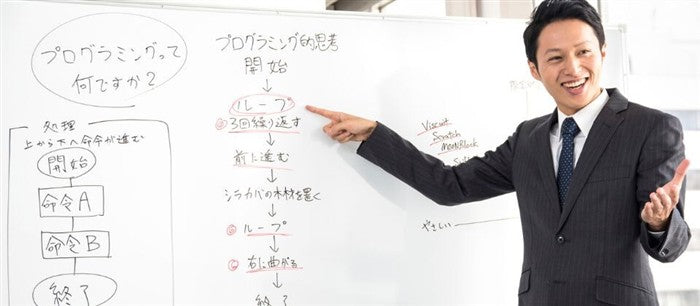 プログラミングって
何ですか?
処理
上から下へ命令が進む
開始
命令A
命令B
終了
プログラミング的思考
開始
ループ
3回繰り返す
前に進む
シラカバの木材を置く
ループ
右に曲がる
終了
Viscuit
Scratch
MOONBlock
やさしい